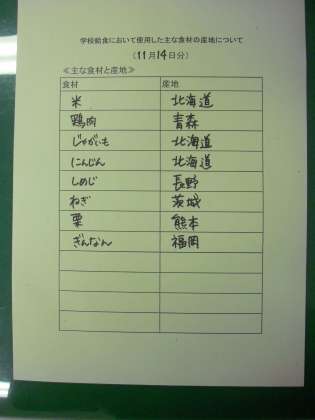 学校給食において使用した主な食材の産地について
（11月14日分）
≪主な食材と産地≫
食材 産地
米 北海道
鶏肉 青森
じゃがいも 北海道
にんじん 北海道
しめじ 長野
ねぎ 茨城
栗 熊本
ぎんなん 福岡